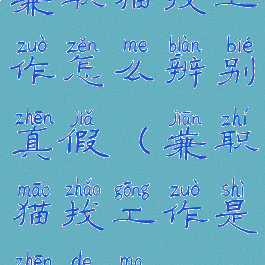 zuò zěn me biàn bié
作怎么辨别
zhēn jiǎ jiān zhí
真假（兼职
māo zhǎo gōng zuò shì
猫找工作是
zhēn de ma